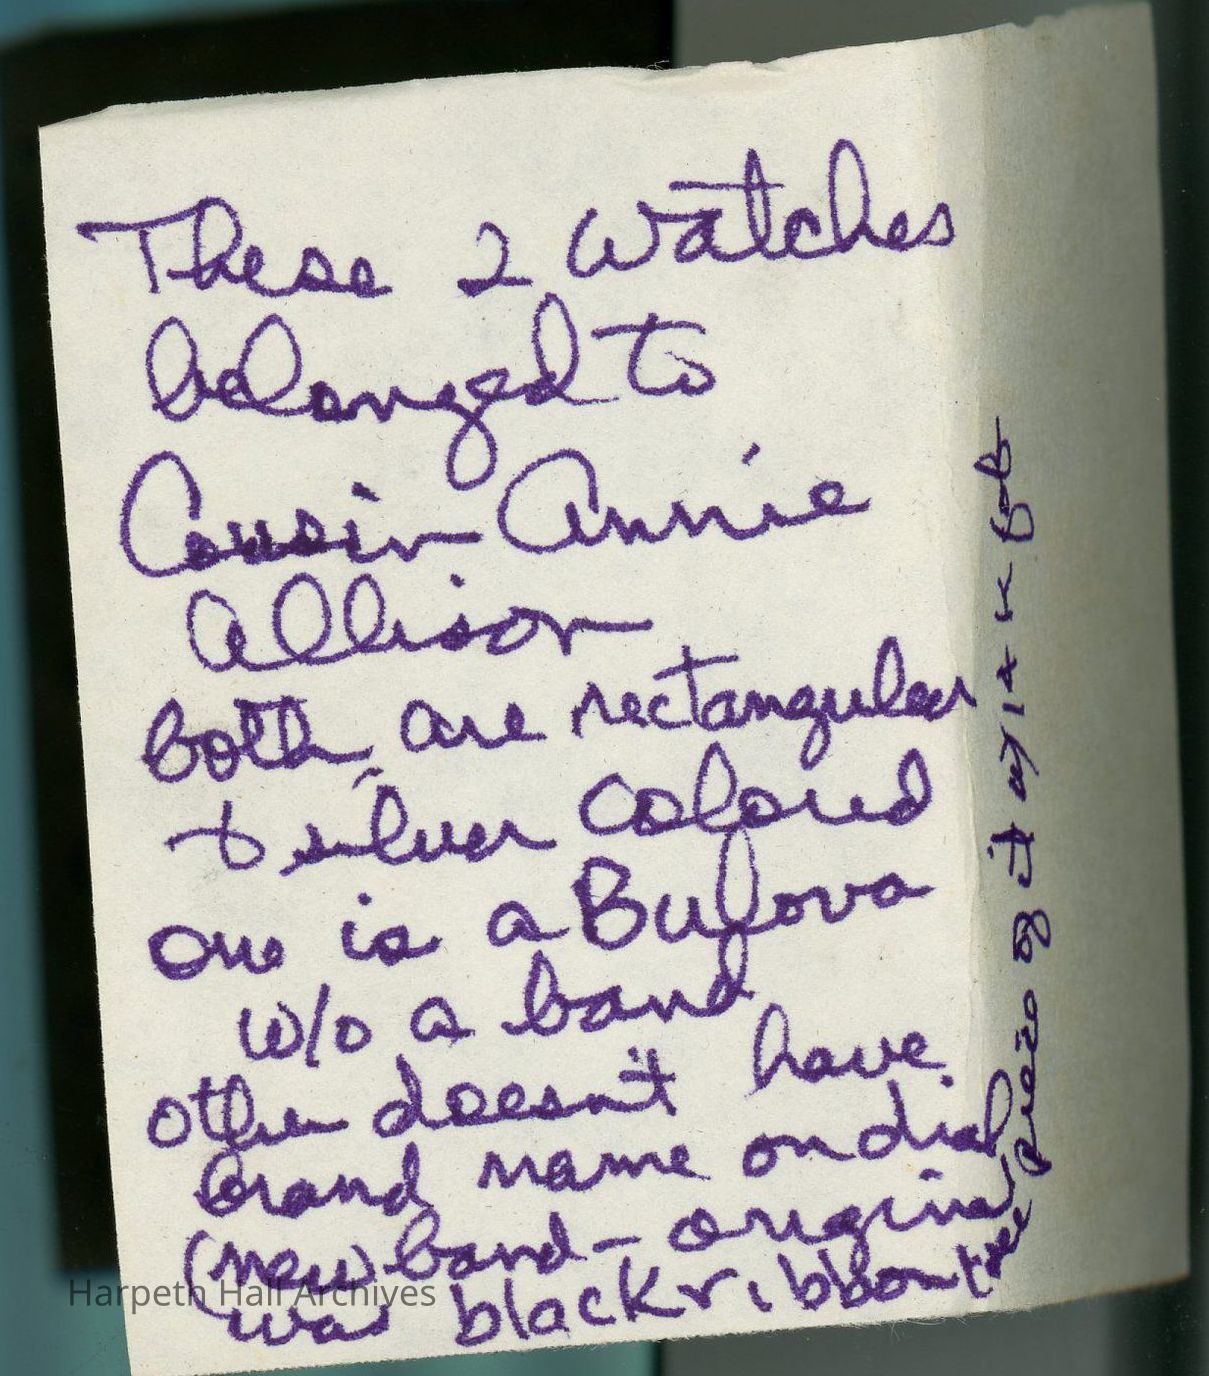 These 2 watches
belonged to
Cousin Annie
Allison
both are rectangular
& silver colored
one is a Bulova
w/o a band
other doesn't have
brand name on dial
(new band - original
was black ribbon
see piece of it w/14 K fob
Harpeth Hall Archives